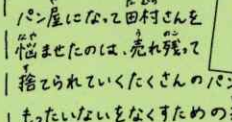 パン屋になって田村さんを
悩ませたのは、売れ残って
捨てられていくたくさんのパン
もったいないをなくすための